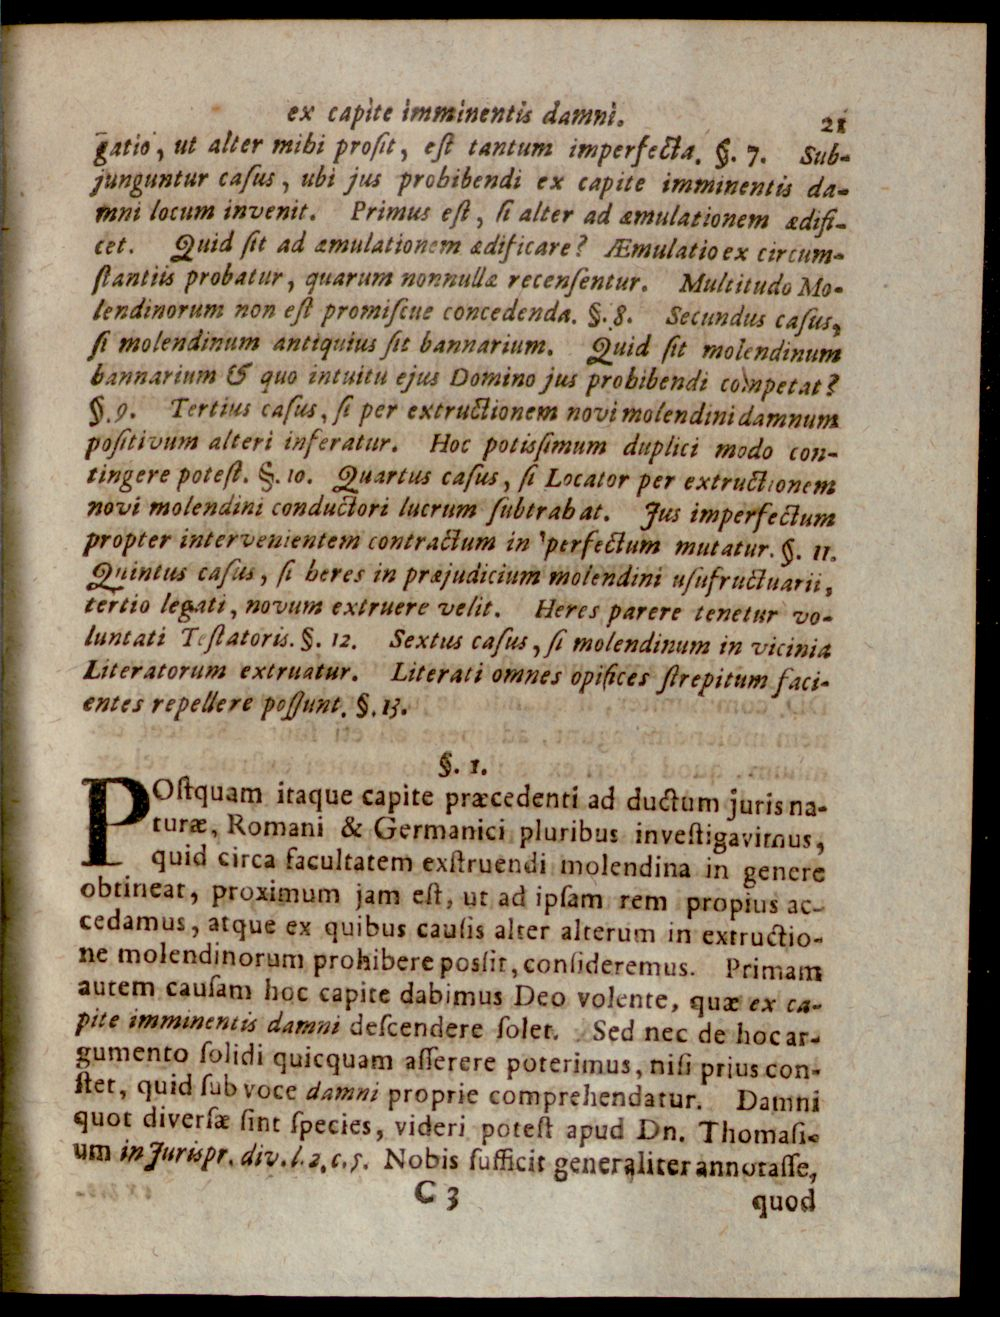 ex capite imminentis damni. 21
gatio, ut alter mihi prosit, est tantum imperfecta. §. 7. Sub-
junguntur casus, ubi jus prohibendi ex capite imminentis da-
mni locum invenit. Primus est, si alter ad æmulationem ædifi-
cet. Quid sit ad æmulationem ædificare? Æmulatio ex circum-
stantiis probatur, quarum nonnullæ recensentur. Multitudo Mo-
lendinorum non est promiscue concedenda. §. 8. Secundus casus,
si molendinum antiquius sit bannarium. Quid sit molendinum
bannarium & quo intuitu ejus Domino jus prohibendi competat?
§. 9. Tertius casus, si per extructionem novi molendini damnum
positivum alteri inferatur. Hoc potissimum duplici modo con-
tingere potest. §. 10. Quartus casus, si Locator per extructionem
novi molendini conductori lucrum subtrahat. Jus imperfectum
propter intervenientem contractum in perfectum mutatur. §. 11.
Quintus casus, si heres in præjudicium molendini usufructuarii,
tertio legati, novum extruere velit. Heres parere tenetur vo-
luntati Testatoris. §. 12. Sextus casus, si molendinum in vicinia
Literatorum extruatur. Literati omnes opifices strepitum faci-
entes repellere possunt. §. 13.
§. 1.
POstquam itaque capite præcedenti ad ductum juris na-
turæ, Romani & Germanici pluribus investigavimus,
quid circa facultatem exstruendi molendina in genere
obtineat, proximum jam est, ut ad ipsam rem propius ac-
cedamus, atque ex quibus causis alter alterum in extructio-
ne molendinorum prohibere possit, consideremus. Primam
autem causam hoc capite dabimus Deo volente, quæ ex ca-
pite imminentis damni descendere solet. Sed nec de hoc ar-
gumento solidi quicquam asserere poterimus, nisi prius con-
stet, quid sub voce damni proprie comprehendatur. Damni
quot diversæ sint species, videri potest apud Dn. Thomasi-
um in Jurispr. div. l. 2. c. 5. Nobis sufficit generaliter annotasse,
C 3 quod